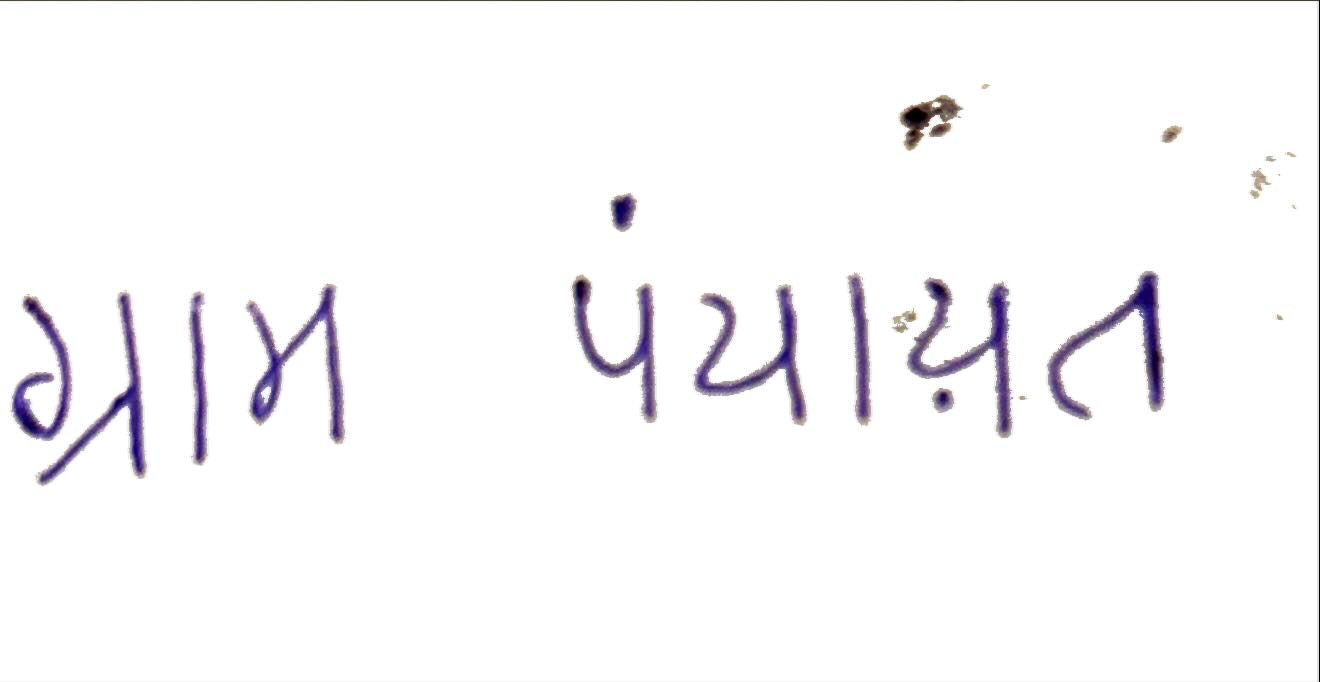 ગ્રામ પંચાયત